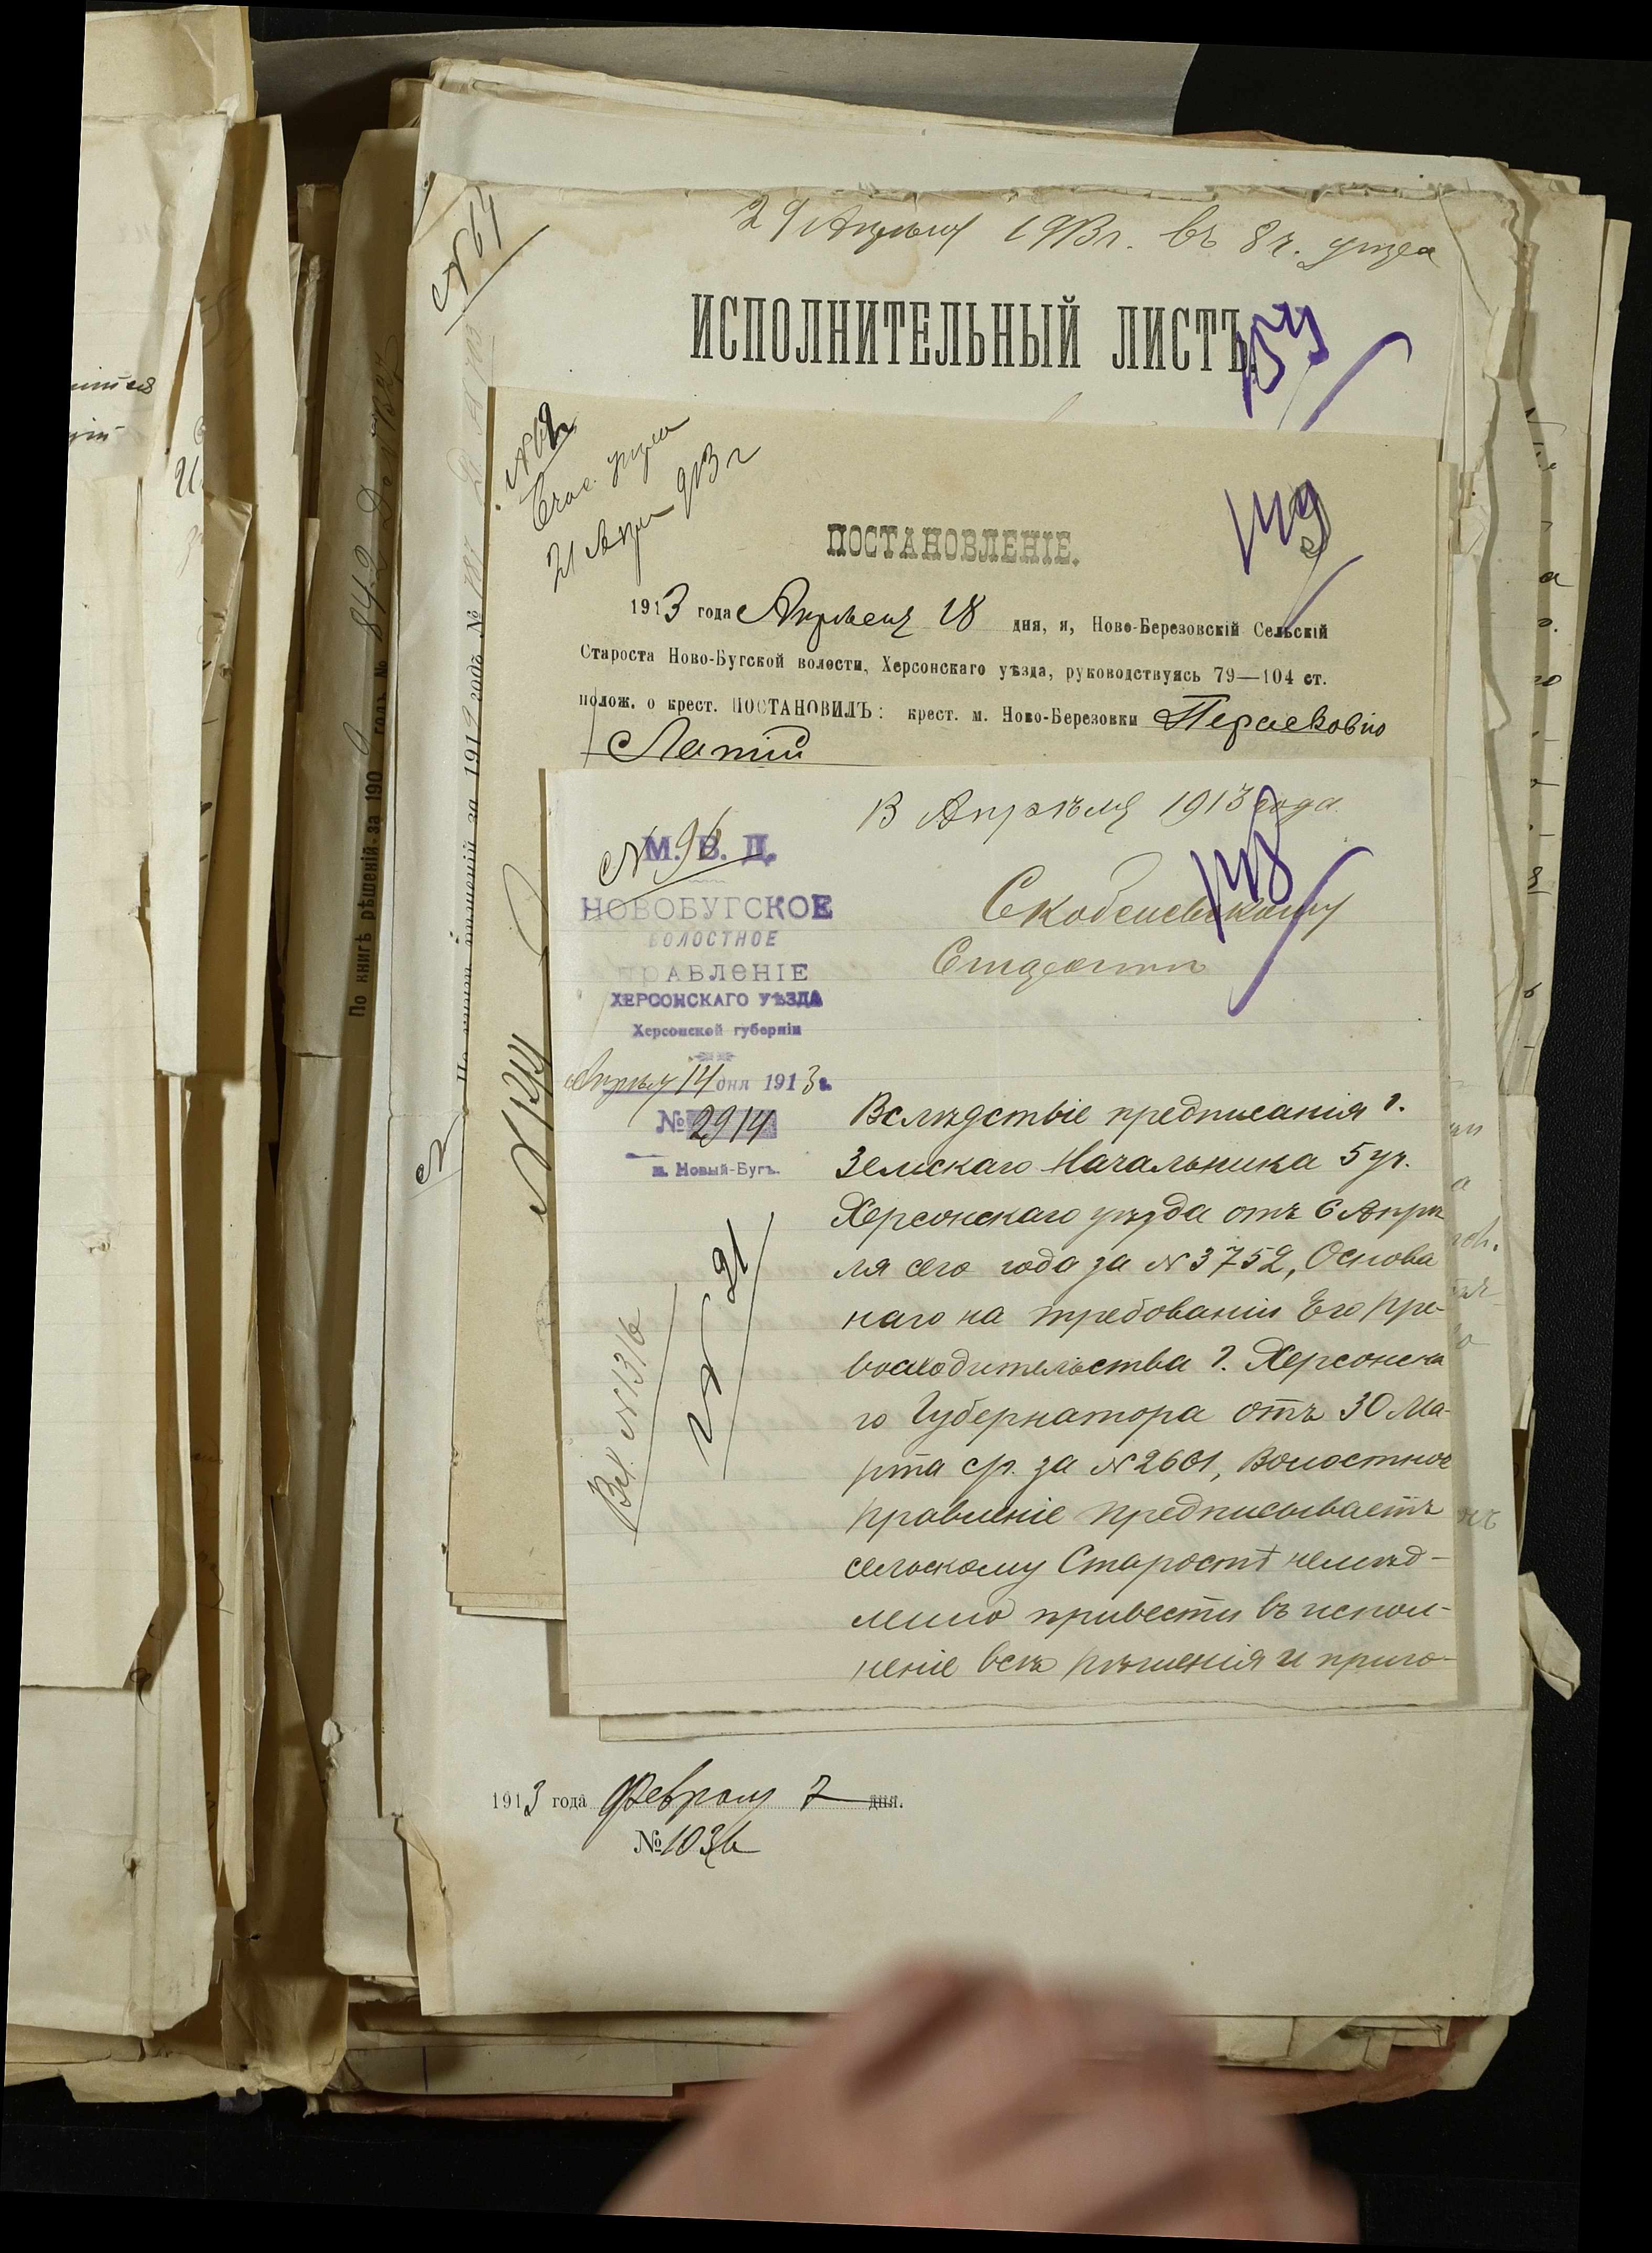 № 64
29 Апреля 1913 г. въ 8 ч. утра
ИСПОЛНИТЕЛЬНЫЙ ЛИСТЪ.
21 Апр 913 г
149
ПОСТАНОВЛЕНІЕ.
1913 года Апреля 18 дня, я, Ново-Березовскій Сельскій
Староста Ново-Бугской волости, Херсонскаго уѣзда, руководствуясь 79—104 ст.
полож. о крест. ПОСТАНОВИЛЪ: крест. м. Ново-Березовки Парасковію
Лапій
По книгѣ рѣшеній за 190
годъ № 842
№ 96
М. В. Д.
НОВОБУГСКОЕ
ВОЛОСТНОЕ
ПРАВЛЕНІЕ
ХЕРСОНСКАГО УѢЗДА
Херсонской губерніи
Апрѣля 14 дня 1913 г.
№ 2914
м. Новый-Бугъ.
Вх. № 1316
№ 91
Апрѣля 1913 года
148
Скобелевскому
Старостѣ
Вслѣдствіе предписанія г.
Земскаго Начальника 5 уч.
Херсонскаго уѣзда отъ 6 Апрѣ
ля сего года за № 3752, Основа
наго на требованіи Его Пре-
восходительства г. Херсонска
го Губернатора отъ 30 Ма-
рта с/г. за № 2601, Волостное
Правленіе предписываетъ
сельскому Старостѣ немед-
ленно привести въ испол-
неніе всѣ рѣшенія и приго-
1913 года Февраля 7 дня.
№ 1036